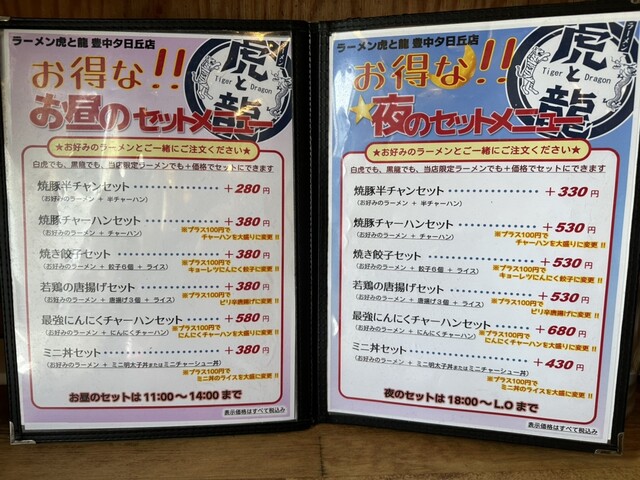 ラーメン虎と龍 豊中夕日丘店
お得な!!
お昼のセットメニュー
虎と龍
Tiger と Dragon
★お好みのラーメンとご一緒にご注文ください★
白虎でも、黒龍でも、当店限定ラーメンでも+価格でセットにできます
焼豚半チャンセット ・・・・・・・・・・ +280円
(お好みのラーメン + 半チャーハン)
焼豚チャーハンセット ・・・・・・・・・・ +380円
(お好みのラーメン + チャーハン)
※プラス100円で
チャーハンを大盛りに変更!!
焼き餃子セット ・・・・・・・・・・ +380円
(お好みのラーメン + 餃子6個 + ライス)
※プラス100円で
キョーレツにんにく餃子に変更!!
若鶏の唐揚げセット ・・・・・・・・・・ +380円
(お好みのラーメン + 唐揚3個 + ライス)
※プラス100円で
ピリ辛唐揚げに変更!!
最強にんにくチャーハンセット ・・・・・ +580円
(お好みのラーメン + にんにくチャーハン)
※プラス100円で
にんにくチャーハンを大盛に変更!!
ミニ丼セット ・・・・・・・・・・ +380円
(お好みのラーメン + ミニ明太子丼またはミニチャーシュー丼)
※プラス100円で
ミニ丼のライスを大盛に変更!!
お昼のセットは 11:00〜14:00 まで
表示価格はすべて税込み
ラーメン虎と龍 豊中夕日丘店
お得な!!
★夜のセットメニュー
虎と龍
Tiger と Dragon
★お好みのラーメンとご一緒にご注文ください★
白虎でも、黒龍でも、当店限定ラーメンでも+価格でセットにできます
焼豚半チャンセット ・・・・・・・・・・ +330円
(お好みのラーメン + 半チャーハン)
焼豚チャーハンセット ・・・・・・・・・・ +530円
(お好みのラーメン + チャーハン)
※プラス100円で
チャーハンを大盛りに変更!!
焼き餃子セット ・・・・・・・・・・ +530円
(お好みのラーメン + 餃子6個 + ライス)
※プラス100円で
キョーレツにんにく餃子に変更!!
若鶏の唐揚げセット ・・・・・・・・・・ +530円
(お好みのラーメン + 唐揚げ3個 + ライス)
※プラス100円で
ピリ辛唐揚げに変更!!
最強にんにくチャーハンセット ・・・・・ +680円
(お好みのラーメン + にんにくチャーハン)
※プラス100円で
にんにくチャーハンを大盛に変更!!
ミニ丼セット ・・・・・・・・・・ +430円
(お好みのラーメン + ミニ明太子丼またはミニチャーシュー丼)
※プラス100円で
ミニ丼のライスを大盛に変更!!
夜のセットは 18:00〜L.O まで
表示価格はすべて税込み